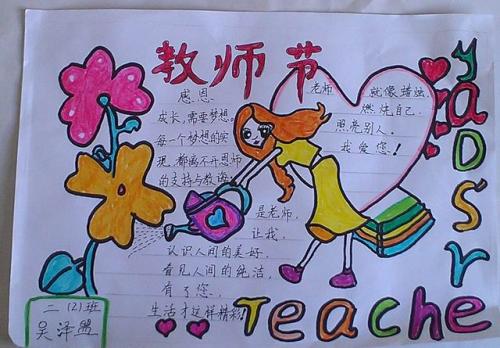 教师节
感恩
成长,需要梦想。
每一个梦想的实
现,都离不开恩师
的支持与教诲!
是老师,
让我,
认识人间的美好,
看见人间的纯洁,
有了您,
生活才这样精彩!
老师 就像蜡烛,
燃烧自己,
照亮别人。
我爱您!
二(2)班
吴泽昷
Teacher
SDay